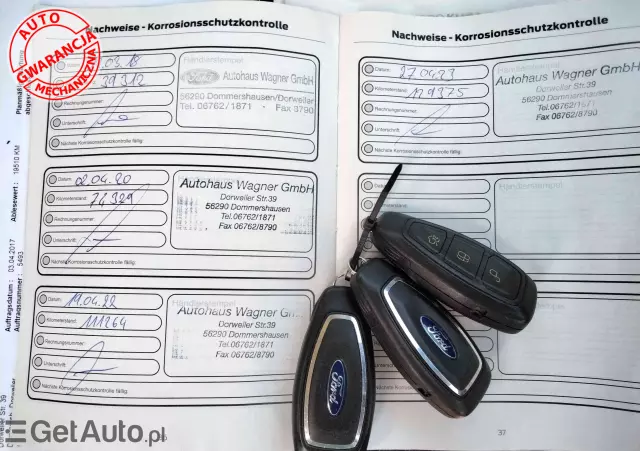 AUTO
GWARANCJA
MECHANICZNA
Nachweise - Korrosionsschutzkontrolle
Händlerstempel
03.18
39312
Rechnungsnummer:
Unterschrift:
Nächste Korrosionsschutzkontrolle fällig:
Ford
Autohaus Wagner GmbH
56290 Dommershausen/Dorweiler
Tel. 06762/1871 - Fax 8790
Datum: 02.04.20
Kilometerstand: 74329
Rechnungsnummer:
Unterschrift:
Nächste Korrosionsschutzkontrolle fällig:
Autohaus Wagner GmbH
Dorweiler Str.39
56290 Dommershausen
Tel.06762/1871
Fax 06762/8790
Datum: 11.04.22
Kilometerstand: 111264
Rechnungsnummer:
Unterschrift:
Nächste Korrosionsschutzkontrolle fällig:
Händlerstempel
Autohaus Wagner GmbH
Dorweiler Str.39
56290 Dommershausen
Tel.06762/1871
Fax 06762/8790
Nachweise - Korrosionsschutzkontrolle
Datum: 27.04.23
Kilometerstand: 129375
Rechnungsnummer:
Unterschrift:
Nächste Korrosionsschutzkontrolle fällig:
Autohaus Wagner GmbH
Dorweiler Str.39
56290 Dommershausen
Tel.06762/1871
Fax 06762/8790
37
Ford
Ford
Auftragsdatum : 03.04.2017
Ablesewert : 19510 KM
Auftragsnummer : 5493
Dorweiler Str. 39
GetAuto.pl